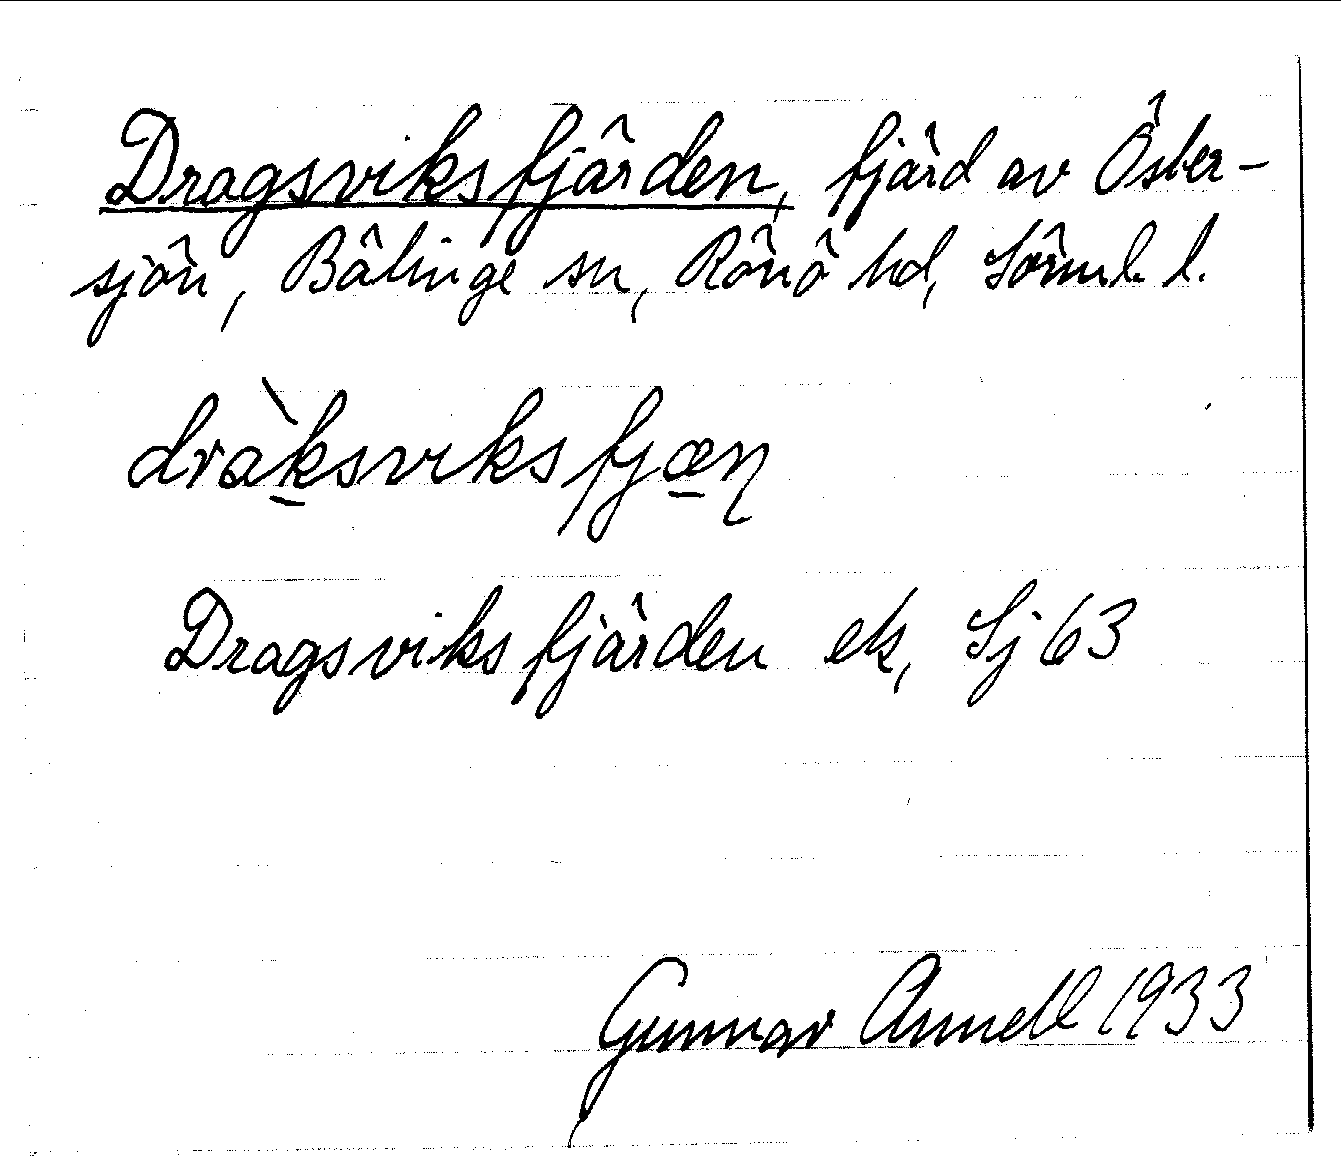 Dragsviksfjärden, fjärd av Öster-
sjön, Bälinge sn, Rönö hd, Sörml. l.
dràk̲sviksfjæ̲ɳ
Dragsviksfjärden ek, Sj 63
Gunnar Annell 1933